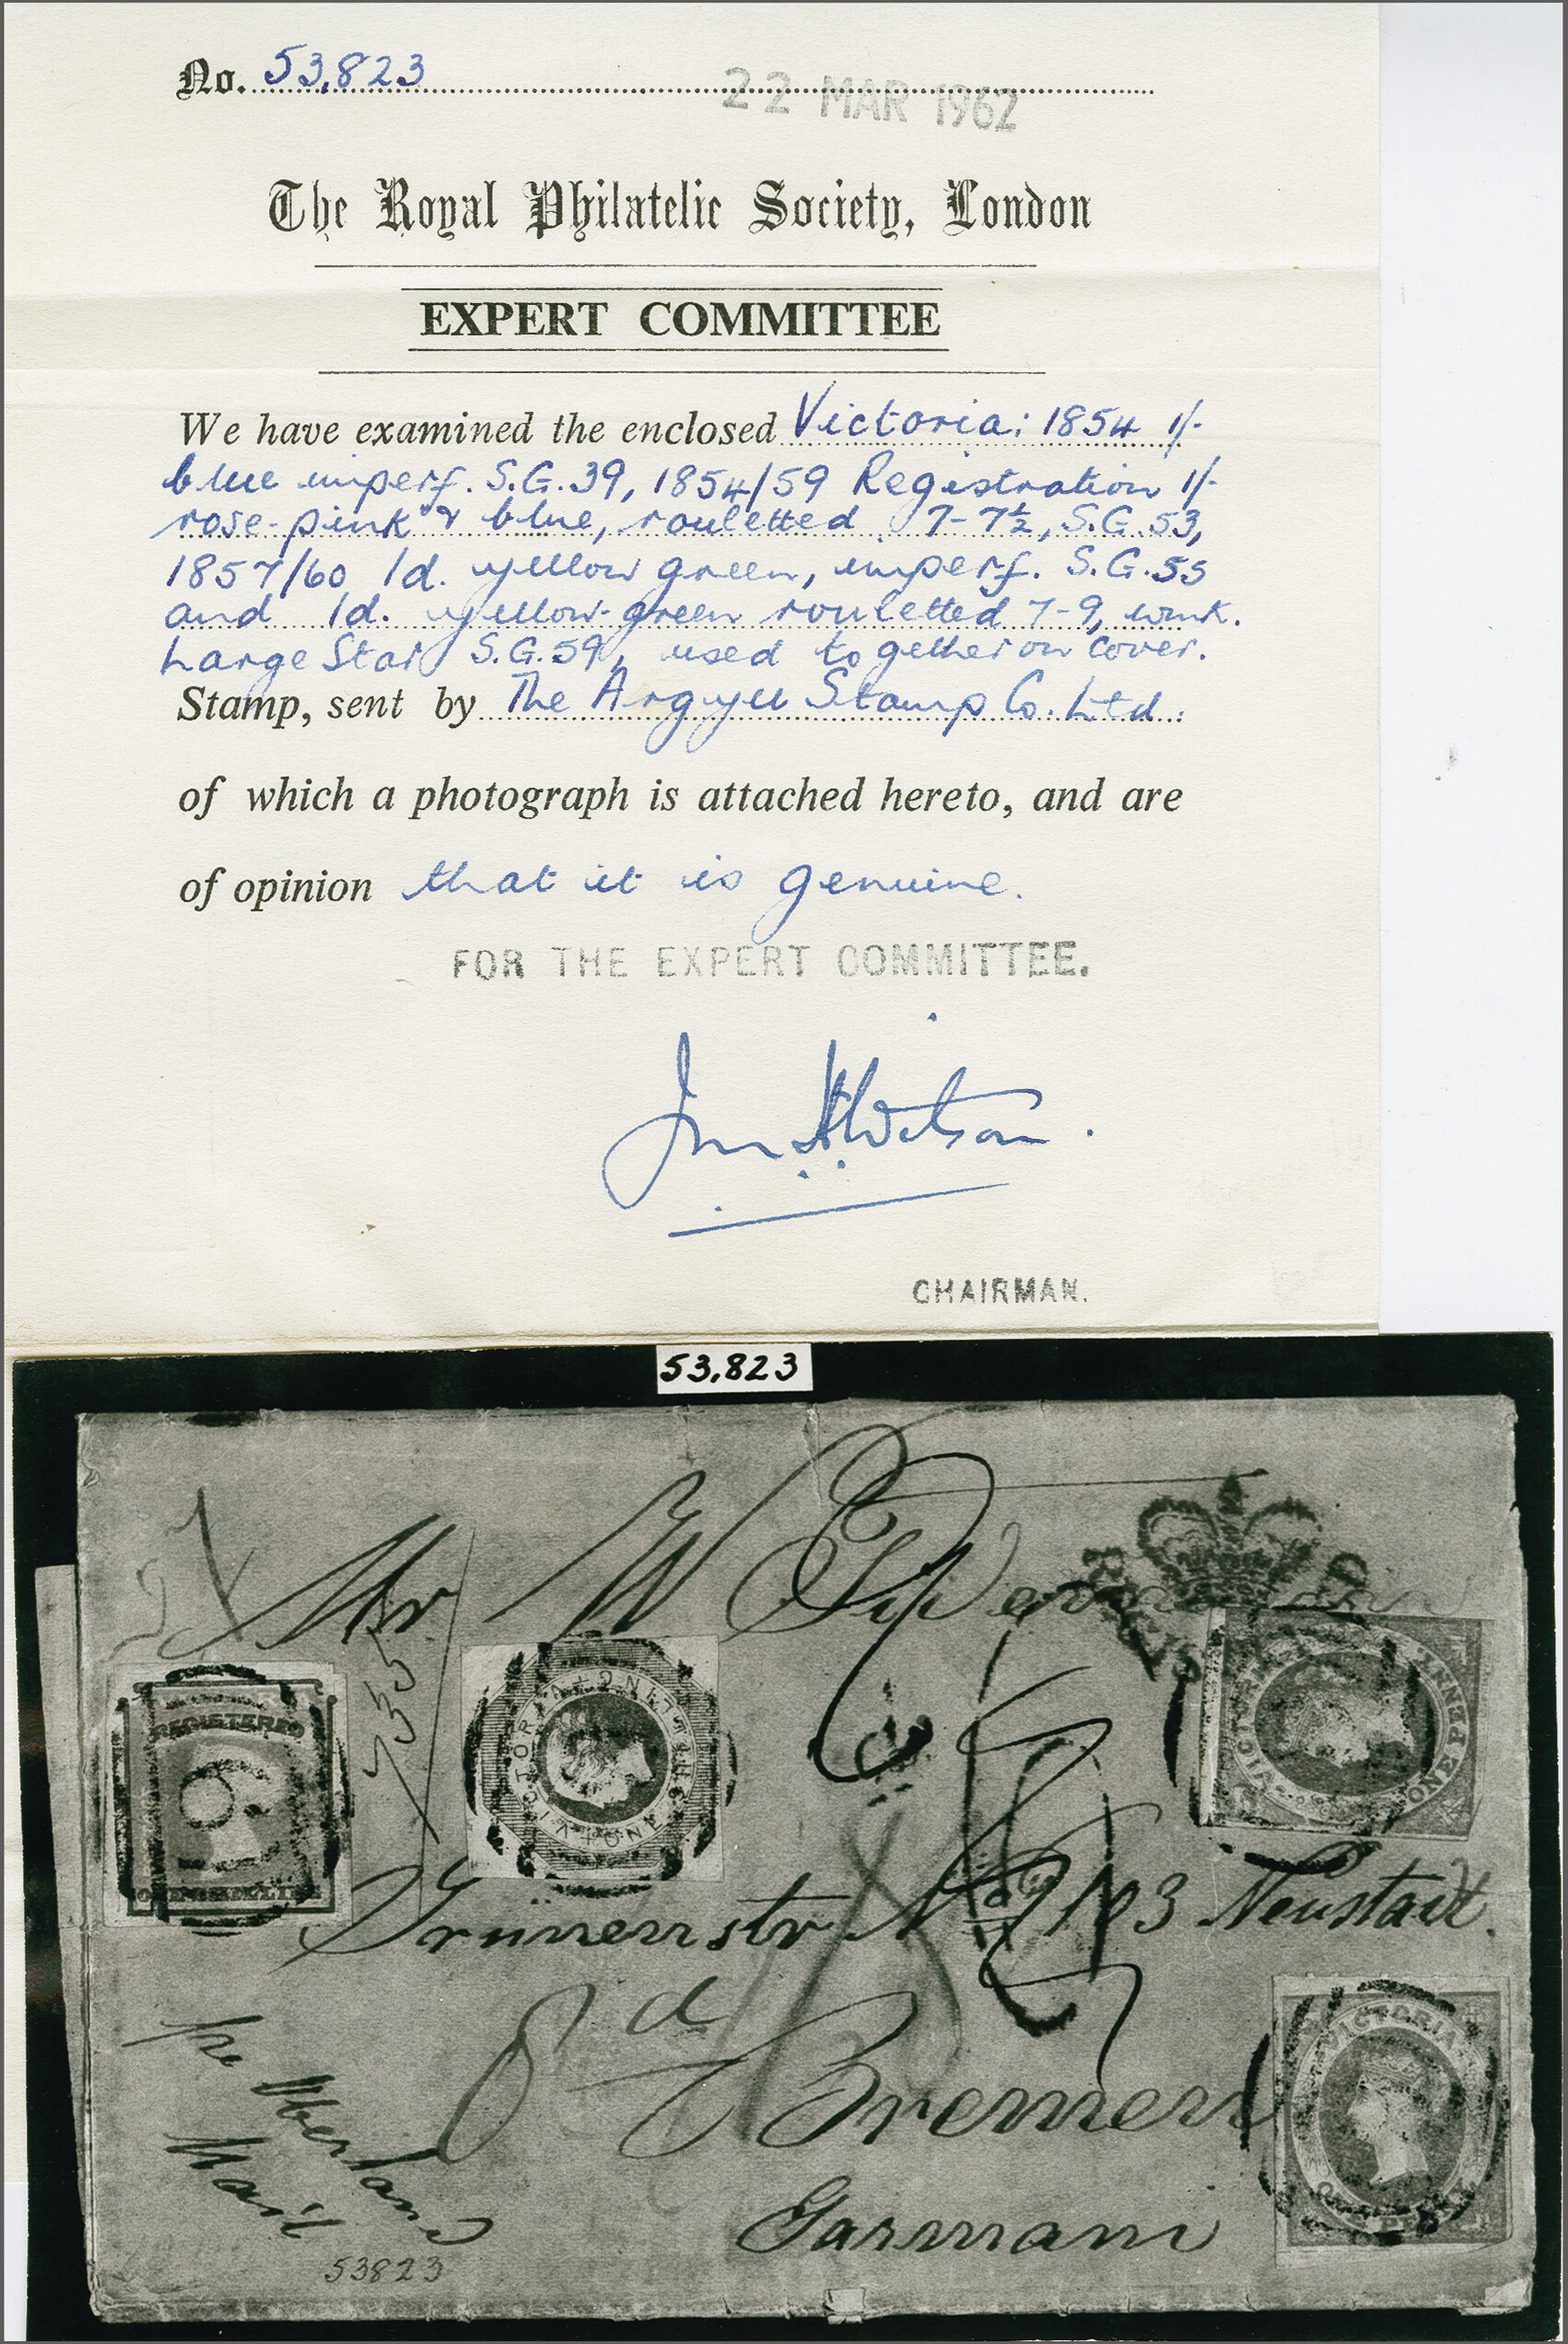 No. 53,823
22 MAR 1962
The Royal Philatelic Society, London
EXPERT COMMITTEE
We have examined the enclosed Victoria: 1854 1/-
blue imperf. S.G.39, 1854/59 Registration 1/-
rose-pink & blue, rouletted 7-7½, S.G.53,
1857/60 1d. yellow green, imperf. S.G.55
and 1d. yellow-green rouletted 7-9, wmk.
Large Star S.G.59, used together on cover.
Stamp, sent by The Argyll Stamp Co. Ltd.
of which a photograph is attached hereto, and are
of opinion that it is genuine.
FOR THE EXPERT COMMITTEE.
CHAIRMAN.
53,823
Mr W
REGISTERED
ONE SHILLING
VICTORIA ONE SHILLING
VICTORIA ONE PENNY
No 103 Neustadt.
Bremen
Garmani
VICTORIA
ONE PENNY
per Overland
Mail
53823